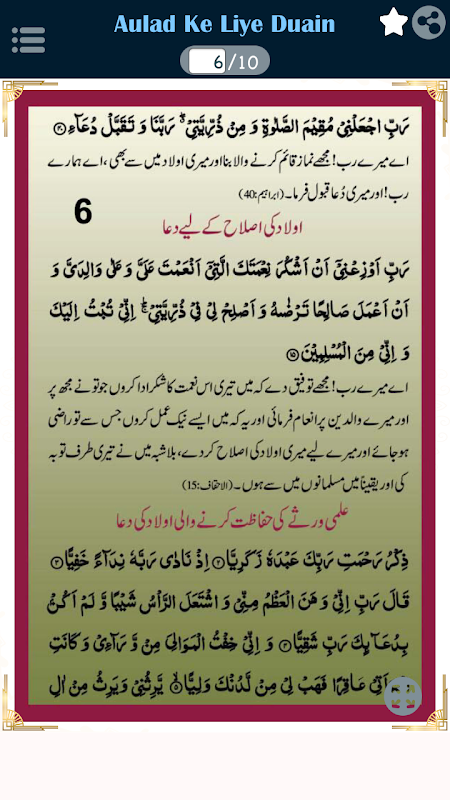 Aulad Ke Liye Duain
6/10
رَبِّ اجْعَلْنِیْ مُقِیْمَ الصَّلٰوةِ وَ مِنْ ذُرِّیَّتِیْ ۖۗ رَبَّنَا وَ تَقَبَّلْ دُعَآءِ ﴿۴۰﴾
اے میرے رب! مجھے نماز قائم کرنے والا بنا اور میری اولاد میں سے بھی، اے ہمارے
رب! اور میری دُعا قبول فرما۔ (ابراہیم:40)
6
اولاد کی اصلاح کے لیے دعا
رَبِّ اَوْزِعْنِیْۤ اَنْ اَشْكُرَ نِعْمَتَكَ الَّتِیْۤ اَنْعَمْتَ عَلَیَّ وَ عَلٰی وَالِدَیَّ وَ
اَنْ اَعْمَلَ صَالِحًا تَرْضٰىهُ وَ اَصْلِحْ لِیْ فِیْ ذُرِّیَّتِیْ ۚؕ اِنِّیْ تُبْتُ اِلَیْكَ
وَ اِنِّیْ مِنَ الْمُسْلِمِیْنَ ﴿۱۵﴾
اے میرے رب! مجھے توفیق دے کہ میں تیری اس نعمت کا شکر ادا کروں جو تونے مجھ پر
اور میرے والدین پر انعام فرمائی اور یہ کہ میں ایسے نیک عمل کروں جس سے تو راضی
ہو جائے اور میرے لیے میری اولاد کی اصلاح کر دے، بلاشبہ میں نے تیری طرف توبہ
کی اور یقیناً میں مسلمانوں میں سے ہوں۔ (الاحقاف:15)
علمی ورثے کی حفاظت کرنے والی اولاد کی دعا
ذِكْرُ رَحْمَتِ رَبِّكَ عَبْدَهٗ زَكَرِیَّا ﴿۲﴾ اِذْ نَادٰی رَبَّهٗ نِدَآءً خَفِیًّا ﴿۳﴾
قَالَ رَبِّ اِنِّیْ وَهَنَ الْعَظْمُ مِنِّیْ وَ اشْتَعَلَ الرَّاْسُ شَیْبًا وَّ لَمْ اَكُنْۢ
بِدُعَآىِٕكَ رَبِّ شَقِیًّا ﴿۴﴾ وَ اِنِّیْ خِفْتُ الْمَوَالِیَ مِنْ وَّرَآءِیْ وَ كَانَتِ
امْرَاَتِیْ عَاقِرًا فَهَبْ لِیْ مِنْ لَّدُنْكَ وَلِیًّا ﴿۵﴾ یَّرِثُنِیْ وَ یَرِثُ مِنْ اٰلِ